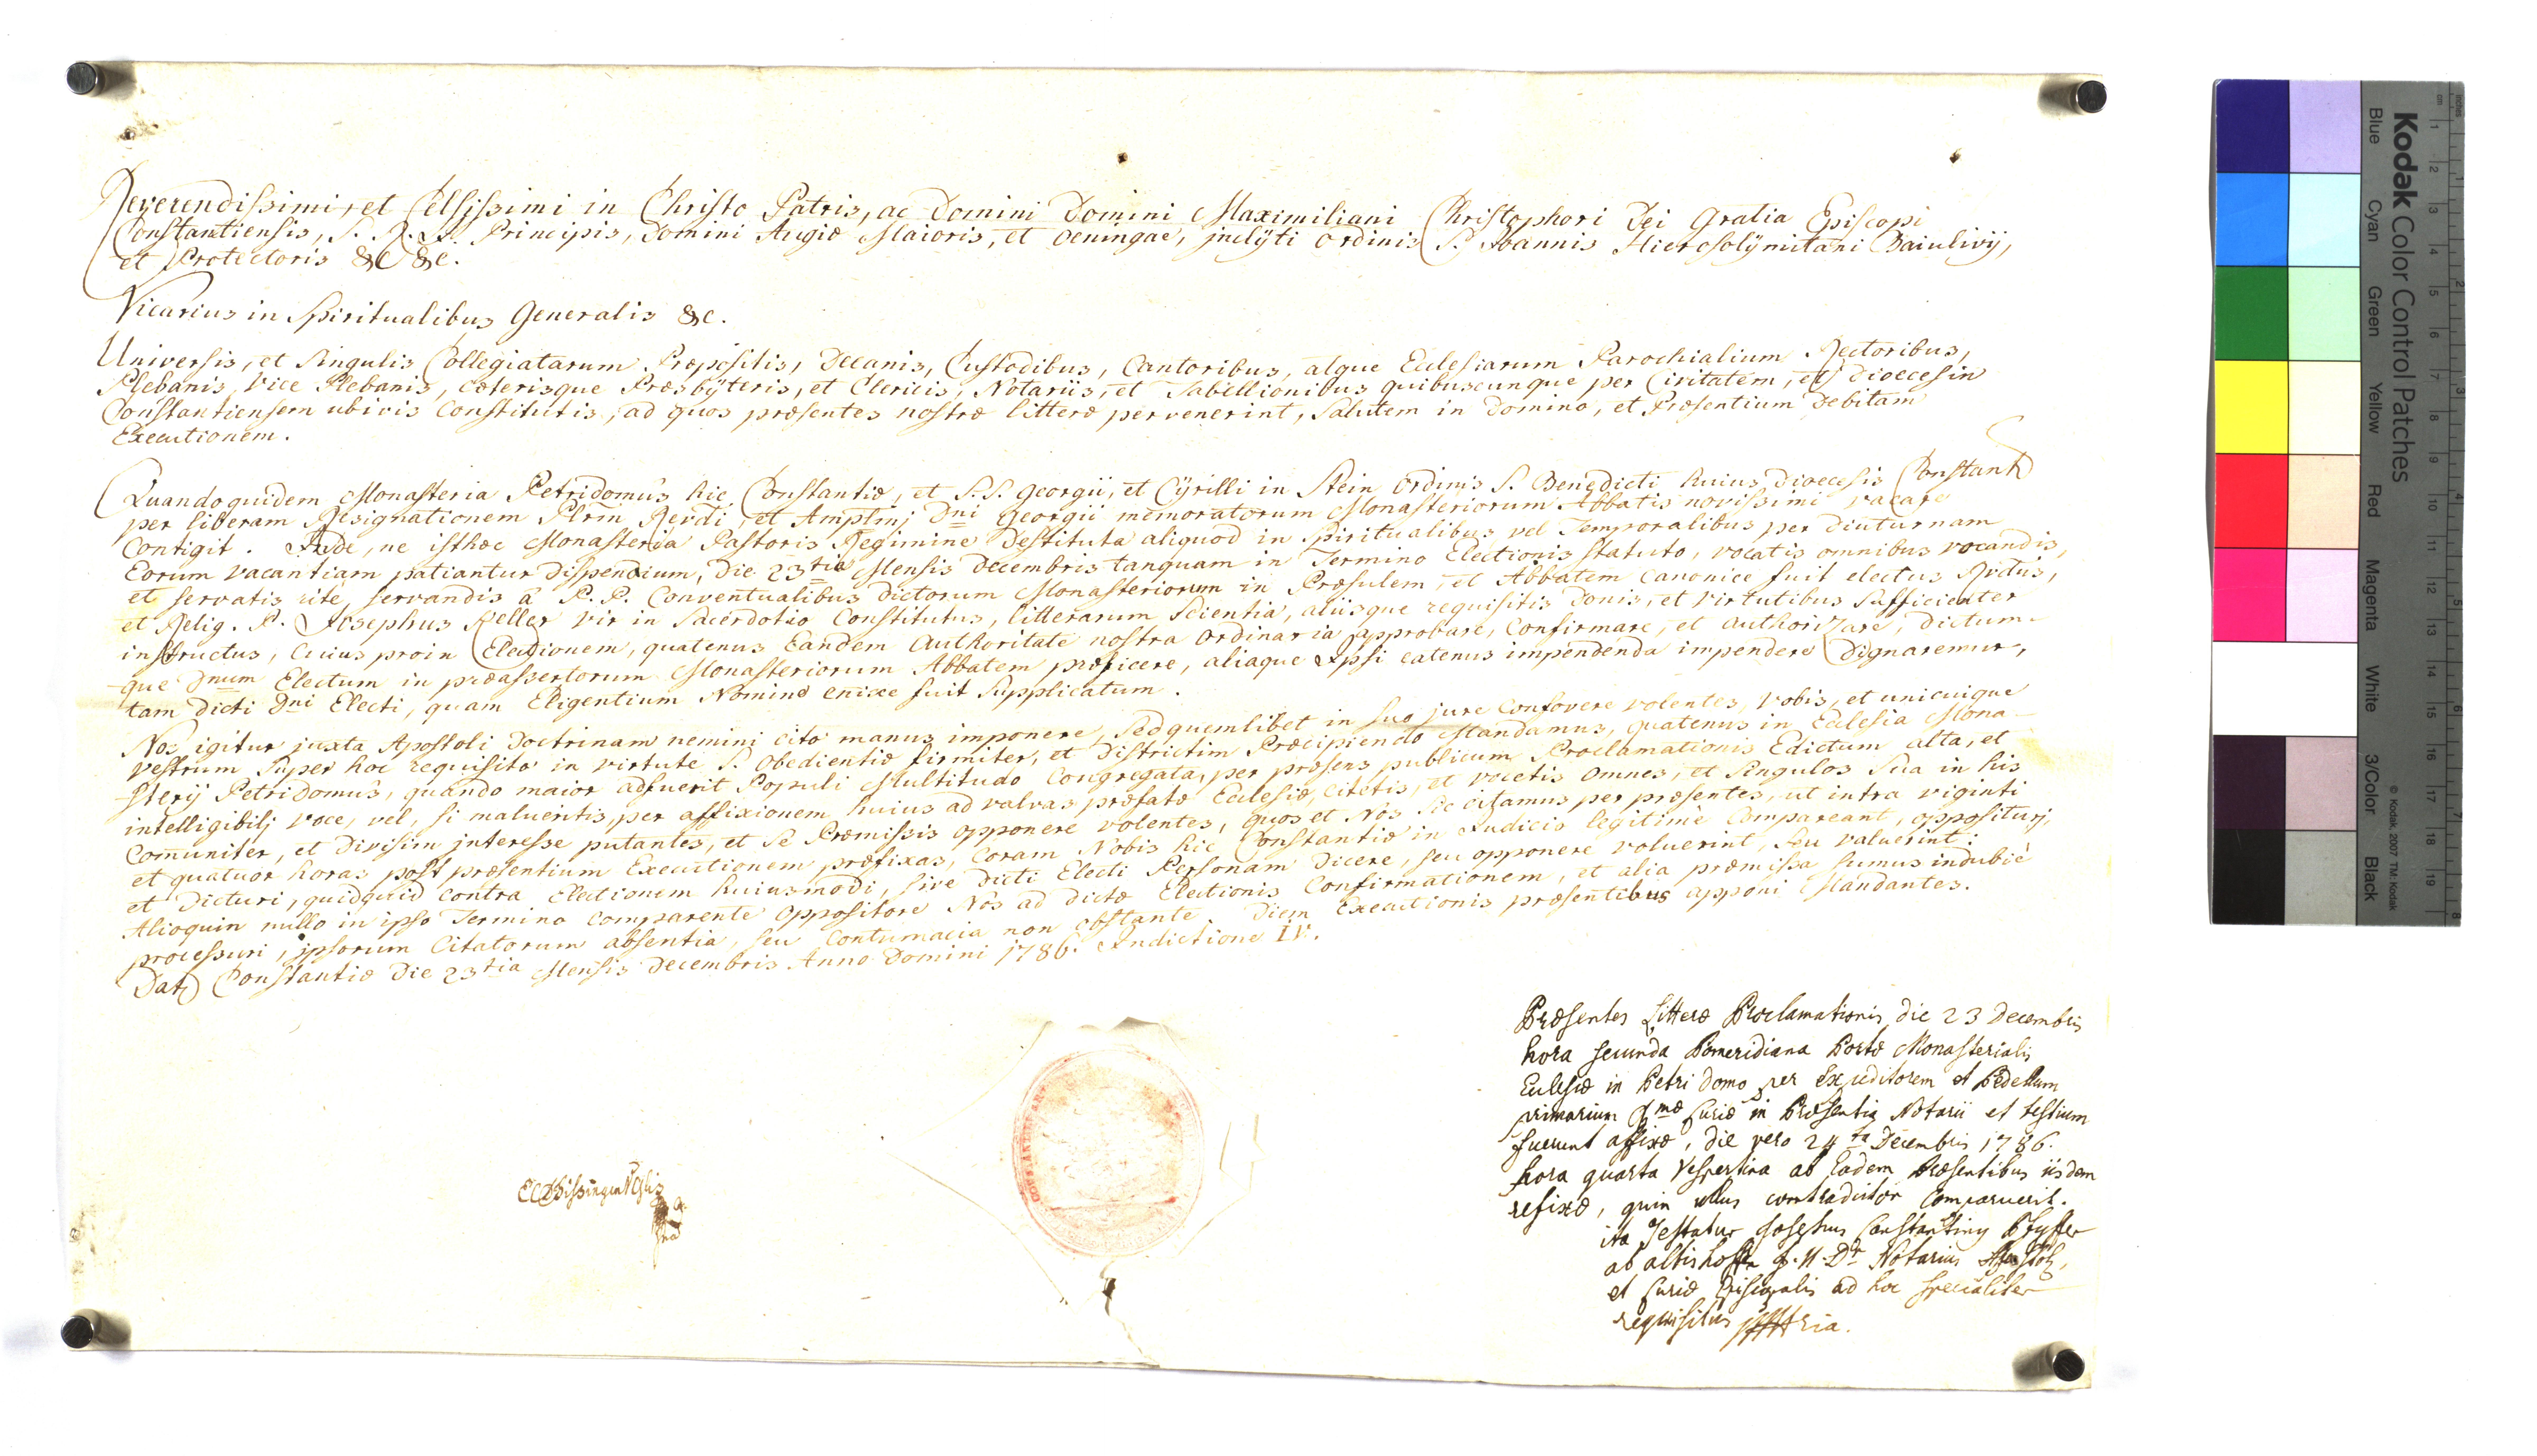 Reverendissimi, et Celsissimi in Christo Patris, ac Domini Domini Maximiliani Christophori Dei Gratia Episcopi
Constantiensis, S. R. I. Principis, Domini Augiæ Maioris, et Oeningae, jnclÿti Ordinis S. Ioannis Hierosolÿmitani Baiulivij,
et Protectoris &c &c.
Vicarius in Spiritualibus Generalis &c.
Universis, et Singulis Collegiatarum Præpositis, Decanis, Custodibus, Cantoribus, atque Ecclesiarum Parochialium Rectoribus,
Plebanis, Vice Plebanis, cæterisque Præsbÿteris, et Clericis, Notariis, et Tabellionibus quibuscunque per Civitatem, et Dioecesin
Constantiensem ubivis Constitutis, ad quos præsentes nostræ litteræ pervenerint, Salutem in Domino, et Præsentium Debitam
Executionem.
Quandoquidem Monasteria Petridomus hic Constantiæ, et S.S. Georgii, et Cÿrilli in Stein Ordinis S. Benedicti huius Dioecesis Constant
per liberam Resignationem Plrm Rerdi, et Amplmj Dni Georgii memoratorum Monasteriorum Abbatis novissimi vacare
Contigit. Inde, ne isthæc Monasteria Pastoris Regimine Destituta aliquod in Spiritualibus vel Temporalibus per diuturnam
Eorum vacantiam patiantur Dispendium, Die 23tia Mensis Decembris tanquam in Termino Electionis Statuto, vocatis omnibus vocandis,
et servatis rite servandis à P.P. Conventualibus dictorum Monasteriorum in Præsulem, et Abbatem canonice fuit electus Rvdus,
et Relig. P. Josephus Keller vir in Sacerdotio Constitutus, litterarum Scientia, aliisque requisitis Donis, et Virtutibus Sufficienter
instructus, Cuius proin Electionem, quatenus Eandem Authoritate nostra Ordinaria approbare, Confirmare, et authorizare, Dictum-
que Dnum Electum in præassertorum Monasteriorum Abbatem præficere, aliaque Ipsi eatenus impendenda impendere Dignaremur,
tam Dicti Dni Electi, quam Eligentium Nomine enixe fuit Supplicatum.
Nos igitur juxta Apostoli Doctrinam nemini cito manus imponere, Sed quemlibet in Suo jure Confovere volentes, Vobis, et unicuique
Vestrum Super hoc requisito in virtute S. Obedientiæ firmiter, et Districtim Præcipiendo Mandamus, quatenus in Ecclesia Mona-
sterij Petridomus, quando maior adfuerit Populi Multitudo Congregata, per præsens publicum Proclamationis Edictum alta, et
intelligibilj voce, vel, si malueritis, per affixionem huius ad valvas præfatæ Ecclesiæ, Citetis, et vocetis Omnes, et Singulos Sua in his
Com̄uniter, et Divisim jnteresse putantes, et Se Præmissis opponere volentes, quos et Nos Sic citamus per præsentes, ut intra viginti
et quatuor horas post præsentium Executionem præfixas, Coram Nobis hic Constantiæ in Iudicio legitime Compareant, opposituri,
et Dicturi, quidquid Contra Electionem huiusmodi, Sive Dicti Electi Personam Dicere, seu opponere voluerint, Seu valuerint:
Alioquin nullo in ipso Termino Comparente Oppositore Nos ad Dictæ Electionis Confirmationem, et alia præmissa Sumus indubiè
processuri, ipsorum Citatorum absentia, seu Contumacia non obstante. Diem Executionis præsentibus apponi Mandantes.
Dat Constantiæ Die 23tia Mensis Decembris Anno Domini 1786. Indictione IV.
Præsentes Litteræ Proclamationis die 23 Decembris
hora secunda Pomeridiana Portæ Monasterialis
Ecclesiæ in Petri domo per Expeditorem et Pedellum
primarium Curiæ in Præsentia Notarii et testium
fuerunt affixæ, die vero 24ta Decembris 1786.
hora quarta Vespertina ab Eadem Præsentibus iisdem
refixæ, quin ullus contradictor Comparuerit.
ita Testatur Josephus Constantinus Pfyffer
ab altishoffen Notarius
et Curiæ Episcopalis ad hoc specialiter
requisitus
Kodak Color Control Patches
Blue Cyan Green Yellow Red Magenta White 3/Color Black
© Kodak, 2007 TM: Kodak
inches 1 2 3 4 5 6 7 8
cm 1 2 3 4 5 6 7 8 9 10 11 12 13 14 15 16 17 18 19